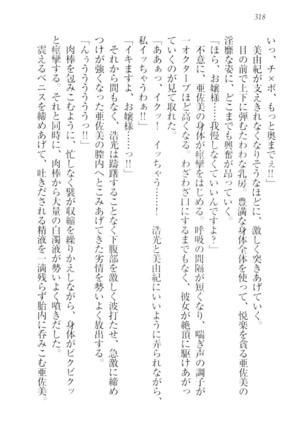 318
いっ、チ×ポ、もっと奥までぇ!!」
美由紀が支えきれなくなりそうなほどに、激しく突きあげていく。
目の前で上下に弾むたわわな乳房、豊満な身体全体を使って、悦楽を貪る亜佐美の
淫靡な姿に、どこまでも興奮が昂っていく。
「ほら、お嬢様……我慢しなくていいんですよ……」
不意に、亜佐美の身体が痙攣をはじめる。呼吸の間隔が短くなり、喘ぎ声の調子が
一オクターブほど高くなる。わざわざ口にするまでもなく、彼女が絶頂に駆けあがっ
ていくのが見て取れた。
「ああぁっ、イクッ! イッちゃう……! 浩光と美由紀にいいように弄られながら、
私イッちゃうわぁ!!」
「イキますよ、お嬢様……っ!!」
それから間もなく、浩光は躊躇することなく下腹部を激しく波打たせ、急激に締め
つけが強くなった亜佐美の膣内へとこみあげてきた劣情を勢いよく放出する。
「んぅううううううっ!!」
肉棒を包みこむように、忙しなく襞が収縮を繰りかえしながら、身体がビクビクッ
と痙攣する。それと同時に、肉棒から大量の白濁液が勢いよく噴きだした。
震えるペニスを締めあげて、吐きだされる精液を一滴残らず胎内に呑みこむ亜佐美